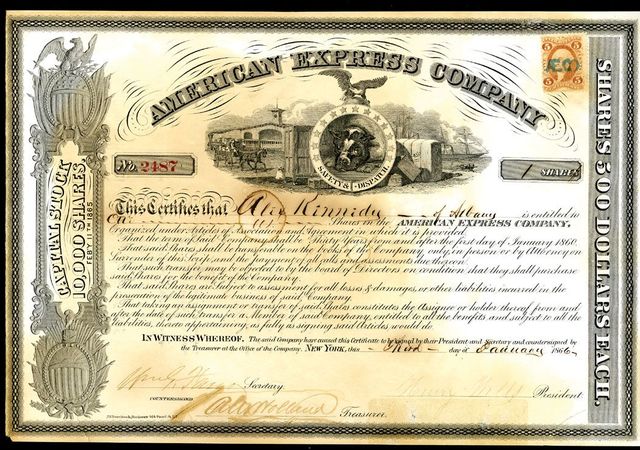 AMERICAN EXPRESS COMPANY
SAFETY & DISPATCH
No. 2487
1 SHARES
CAPITAL STOCK
10,000 SHARES
FEBY 11TH 1865
SHARES 500 DOLLARS EACH.
This Certifies that Alex Kennedy of Albany is entitled to
One Shares in the AMERICAN EXPRESS COMPANY,
Organized under Articles of Association and Agreement in which it is provided
That the term of said Company shall be Thirty Years from and after the first day of January 1860
That said Shares shall be transferable on the books of the Company only in person or by Attorney on
Surrender of this Scrip and the payment of all calls and assessments due thereon.
That such transfer may be objected to by the board of Directors on condition that they shall purchase
the Shares for the benefit of the Company.
That said Shares are Subject to assessment for all losses & damages, or other liabilities incurred in the
prosecution of the legitimate business of said Company.
That taking an assignment or transfer of said Shares constitutes the Assignee or holder thereof from and
after the date of such transfer a Member of said Company, entitled to all the benefits and subject to all the
liabilities, thereto appertaining, as fully as signing said Articles would do.
IN WITNESS WHEREOF. The said Company has caused this Certificate to be signed by their President and Secretary and countersigned by
the Treasurer at the Office of the Company. NEW YORK, this Third day of February 1866
Secretary.
President.
COUNTERSIGNED
Alex Holland
Treasurer.